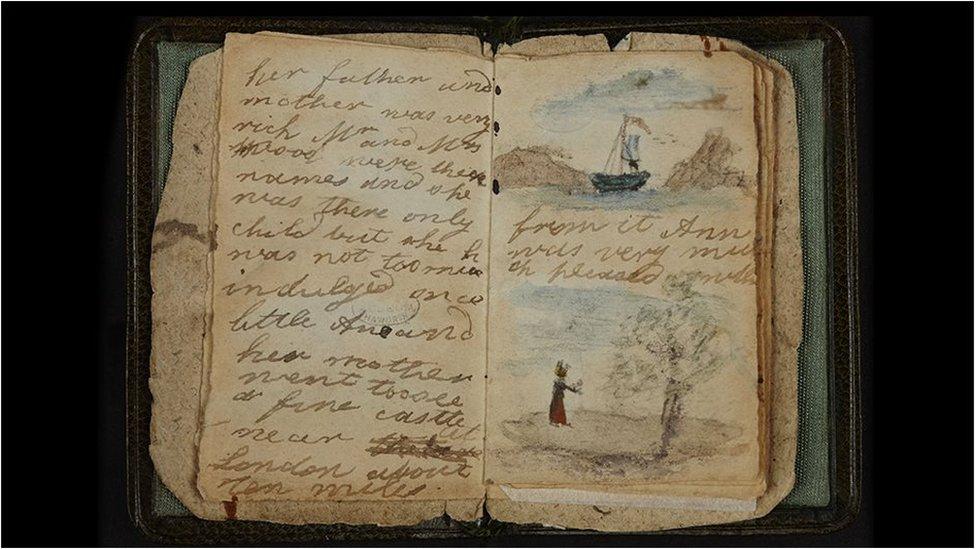 her father and
mother was very
rich Mr and Mrs
Wood were there
names and she
was there only
child but she h
was not too muc
indulged once
little Ane and
her mother
went too see
a fine castle
near
London about
ten miles.
from it Ann
was very mu
ch pleased with